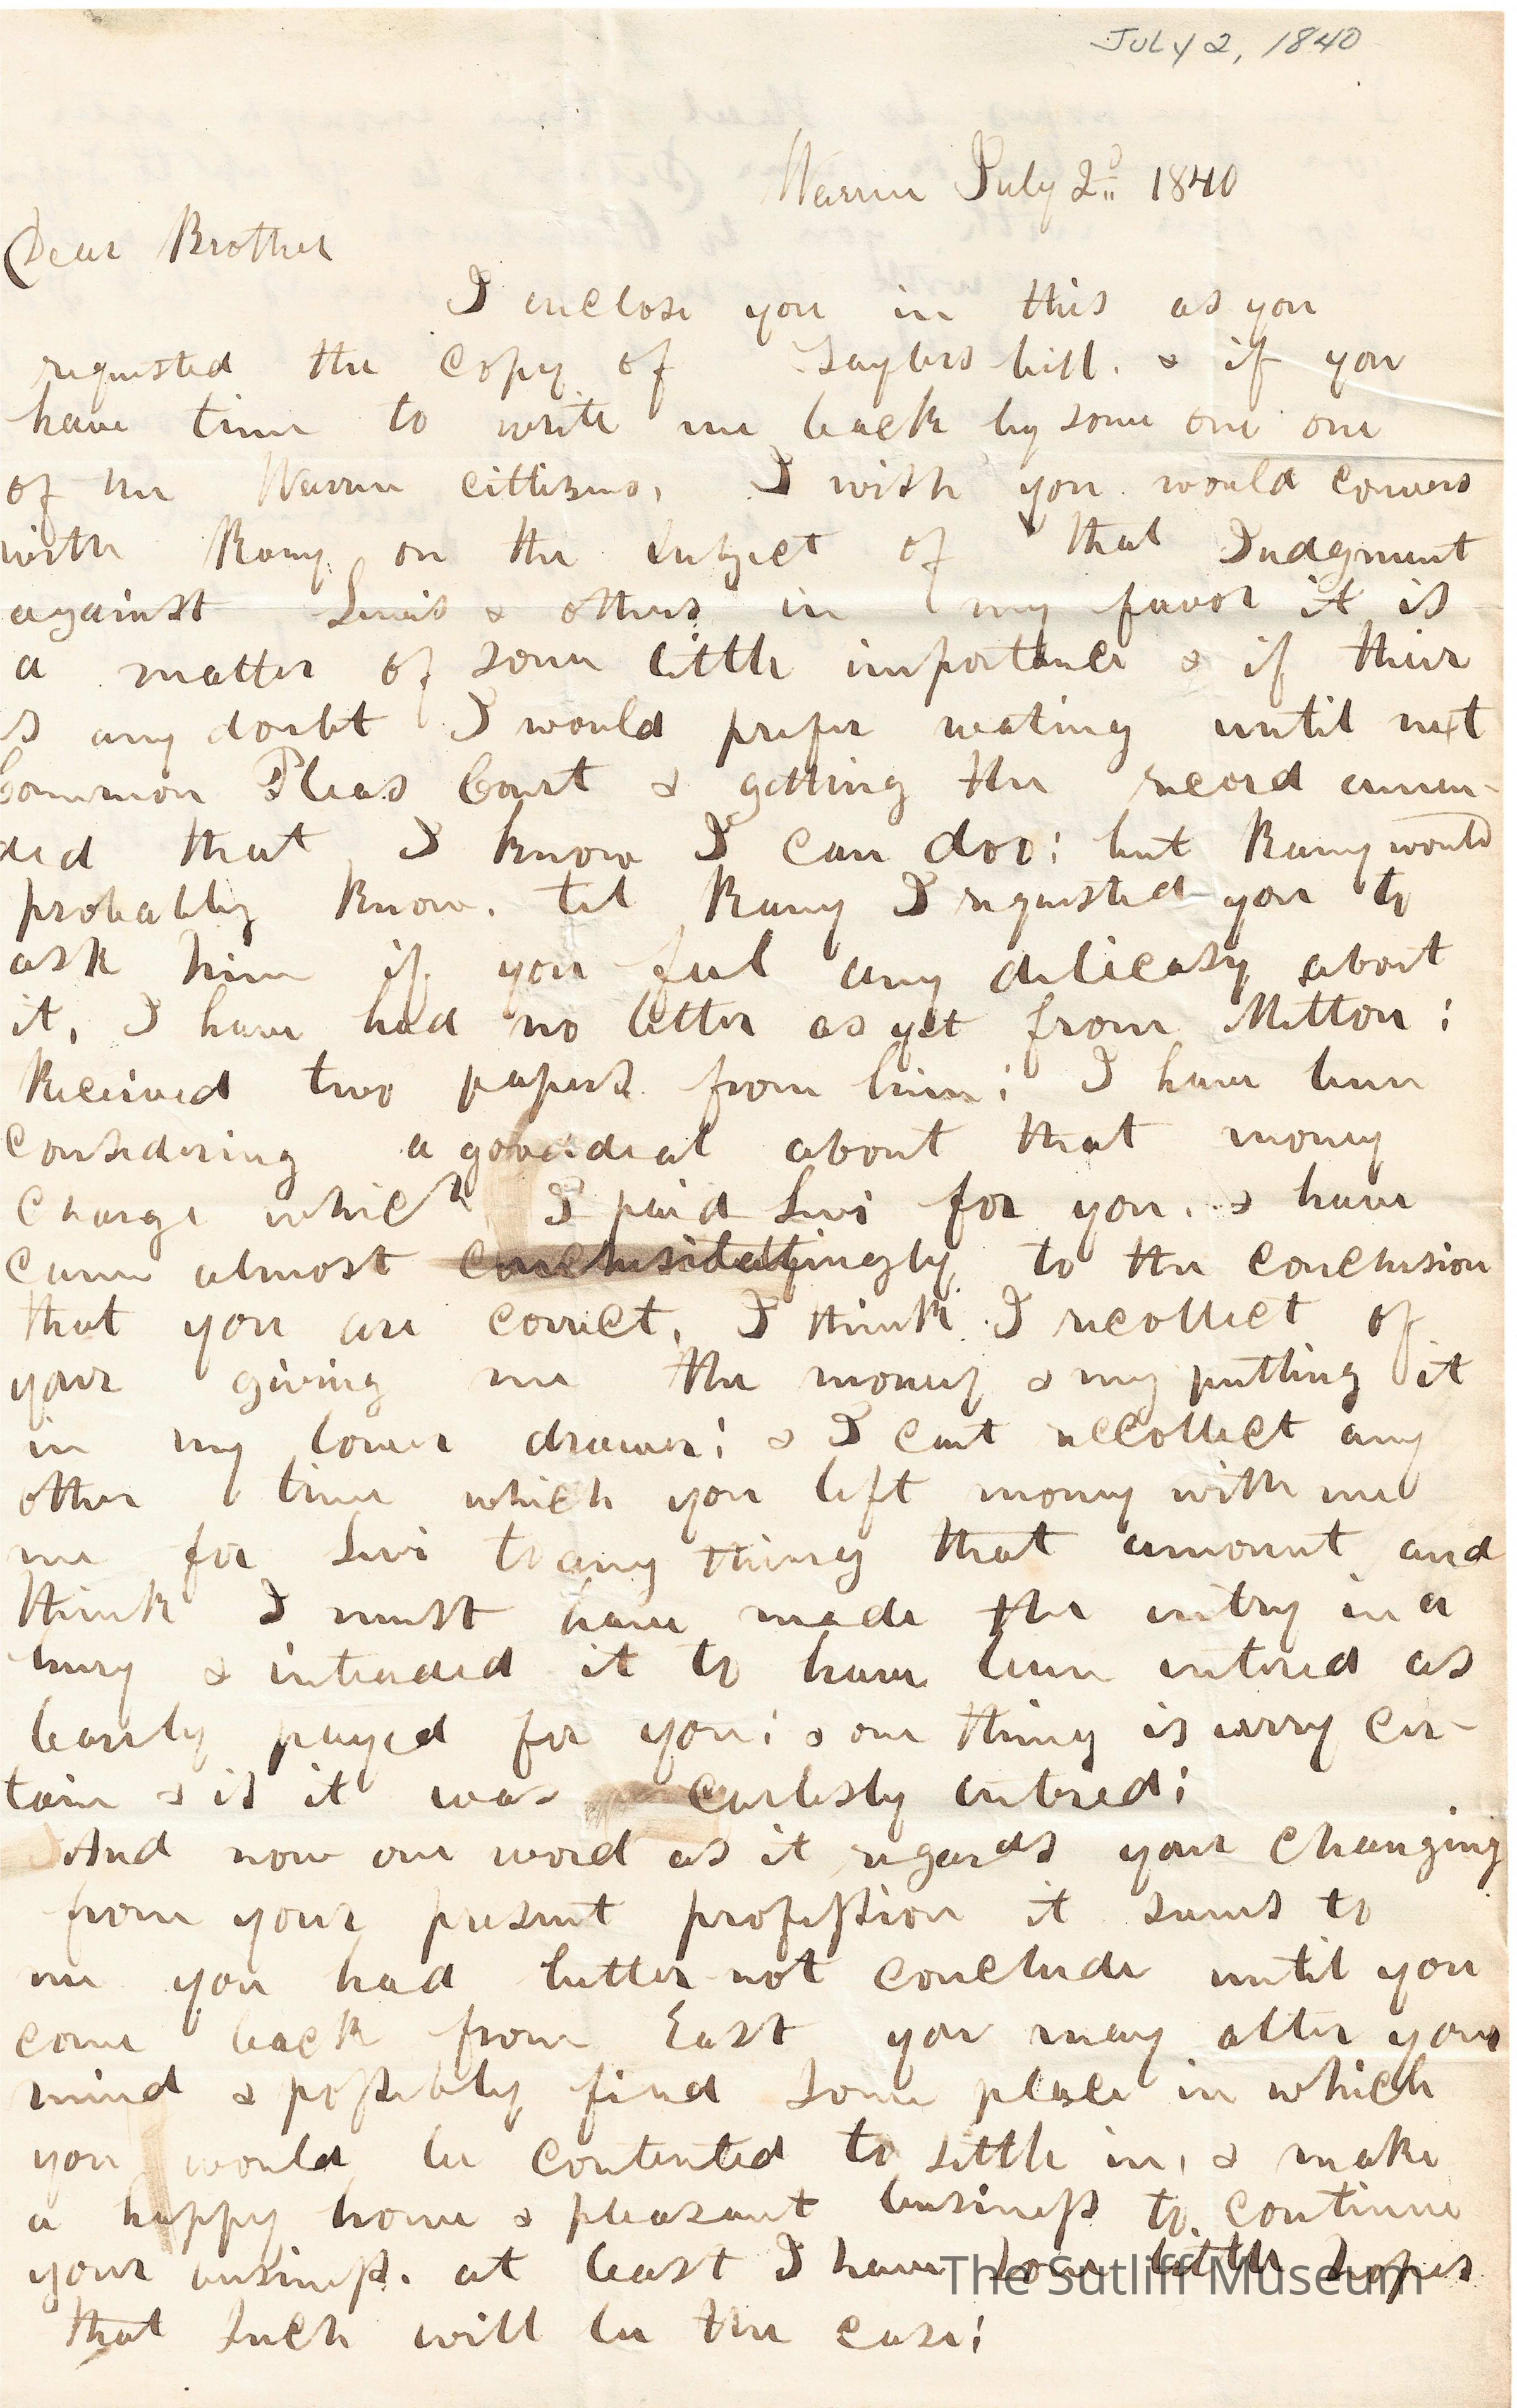 JULY 2, 1840
Warren July 2d 1840
Dear Brother
I enclose you in this as you
requested the copy of Saylers bill. & if you
have time to write me back by some one one
of the Warren cittisens, I wish you would convers
with Rany on the subject of that Judgment
against Lewis & others in my favor it is
a matter of some little importance & if their
is any doubt I would prefer wating until next
Common Pleas Court & getting the record amen-
ded that I know I can doo; but Rany would
probably know. tel Rany I requested you to
ask him if you feel any delicasy about
it, I have had no letter as yet from Milton;
Received two papers from him; I have been
considering a good deal about that money
charge which I paid Levi for you. & have
came almost to the conclusion
that you are correct, I think I recollect of
your giving me the money & my putting it
in my lower drawer; & I cant reccollect any
other time which you left money with me
me for Levi to any thing that amount and
think I must have made the entry in a
hury & intended it to have been entered as
barely payed for you; & one thing is verry cer-
tain & is it was carlesly entered;
And now one word as it regards your changing
from your present profession it seems to
me you had better not conclude until you
come back from East you may alter your
mind & possibly find some place in which
you would be contented to settle in, & make
a happy home & pleasant business to continue
your business. at least I have some little hopes
that such will be the case;
The Sutliff Museum